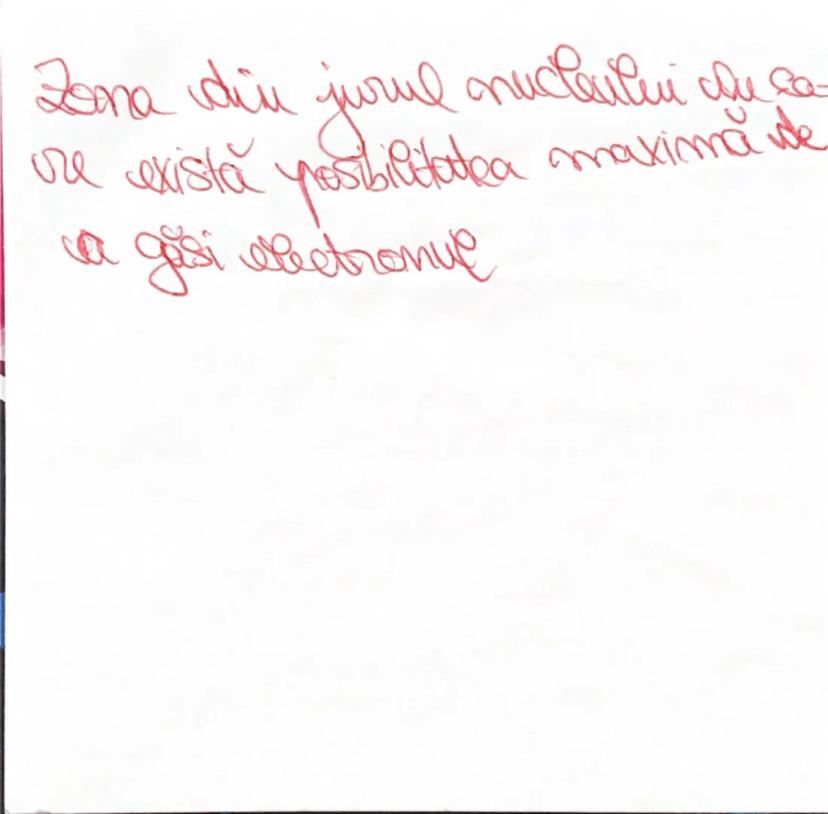 Zona din jurul nucleului în ca-
re există posibilitatea maximă de
a găsi electronul